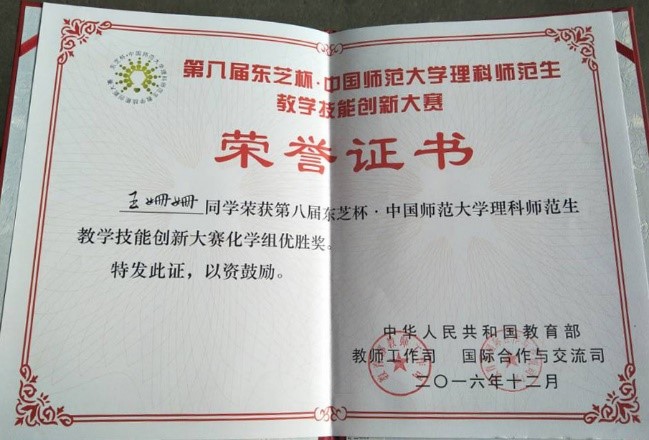 第八届东芝杯·中国师范大学理科师范生
教学技能创新大赛
荣誉证书
王姗姗同学荣获第八届东芝杯·中国师范大学理科师范生
教学技能创新大赛化学组优胜奖。
特发此证，以资鼓励。
中华人民共和国教育部
教师工作司 国际合作与交流司
二〇一六年十二月